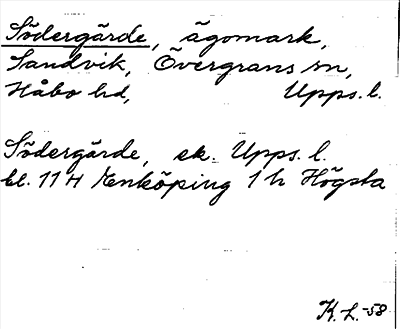 Södergärde, ägomark,
Sandvik, Övergrans sn,
Håbo hd, Upps. l.
Södergärde, ek. Upps. l.
bl. 11 H Enköping 1 h Högsta
K. L. -58